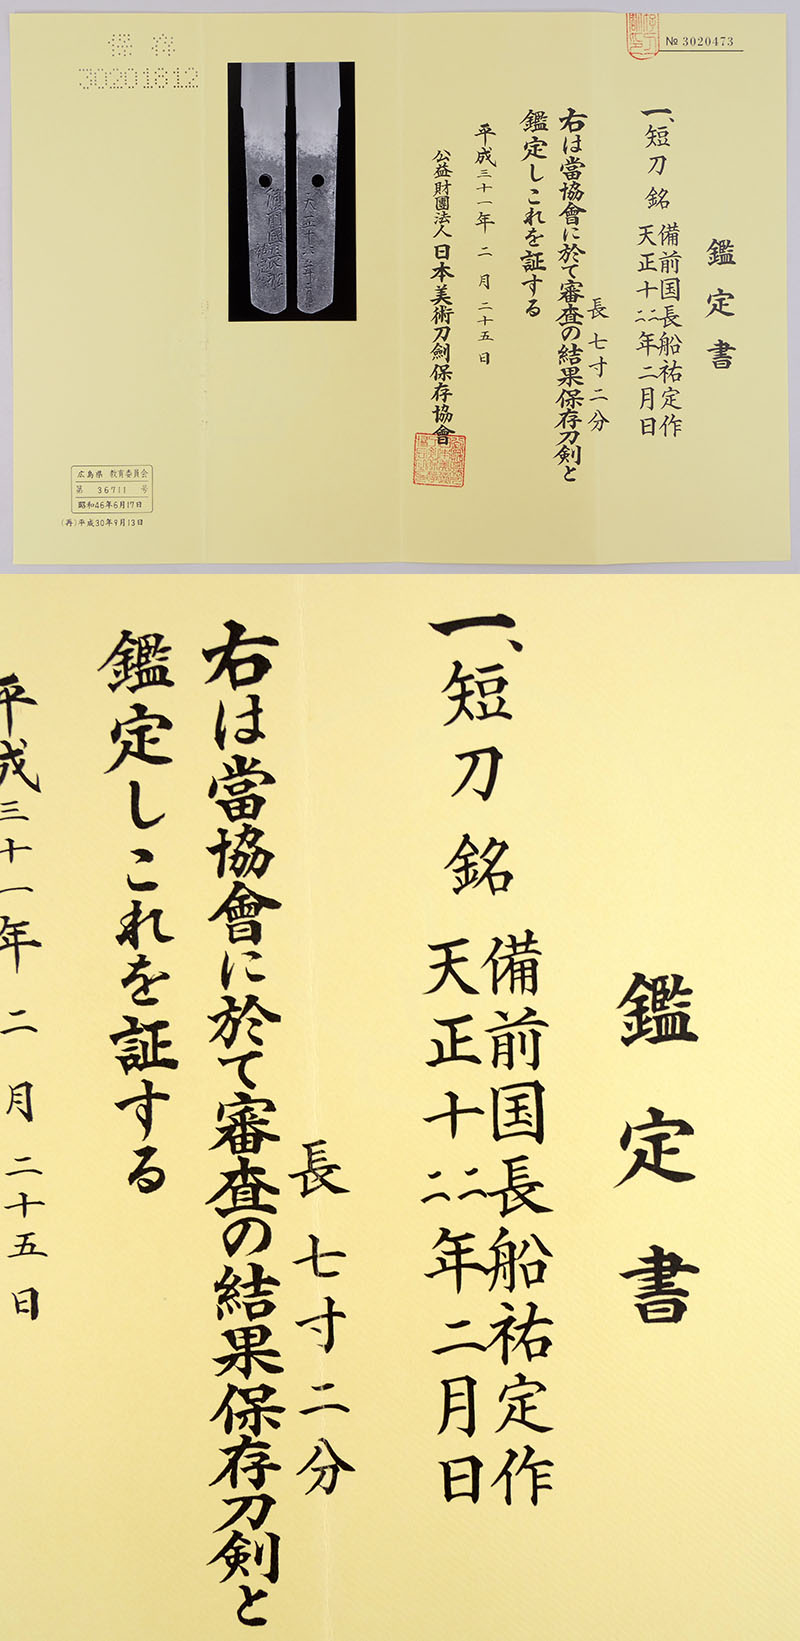 鑑定書
№ 3020473
一、短刀 銘 備前国長船祐定作
天正十二二年二月日
長 七寸二分
右は當協會に於て審査の結果保存刀剣と
鑑定しこれを証する
平成三十一年 二月 二十五日
公益財團法人 日本美術刀劍保存協會
保存
30201812
広島県 教育委員会
第 36711 号
昭和46年6月17日
(再)平成30年9月13日
鑑定書
一、短刀 銘 備前国長船祐定作
天正十二二年二月日
長 七寸二分
右は當協會に於て審査の結果保存刀剣と
鑑定しこれを証する
平成三十一年 二月 二十五日